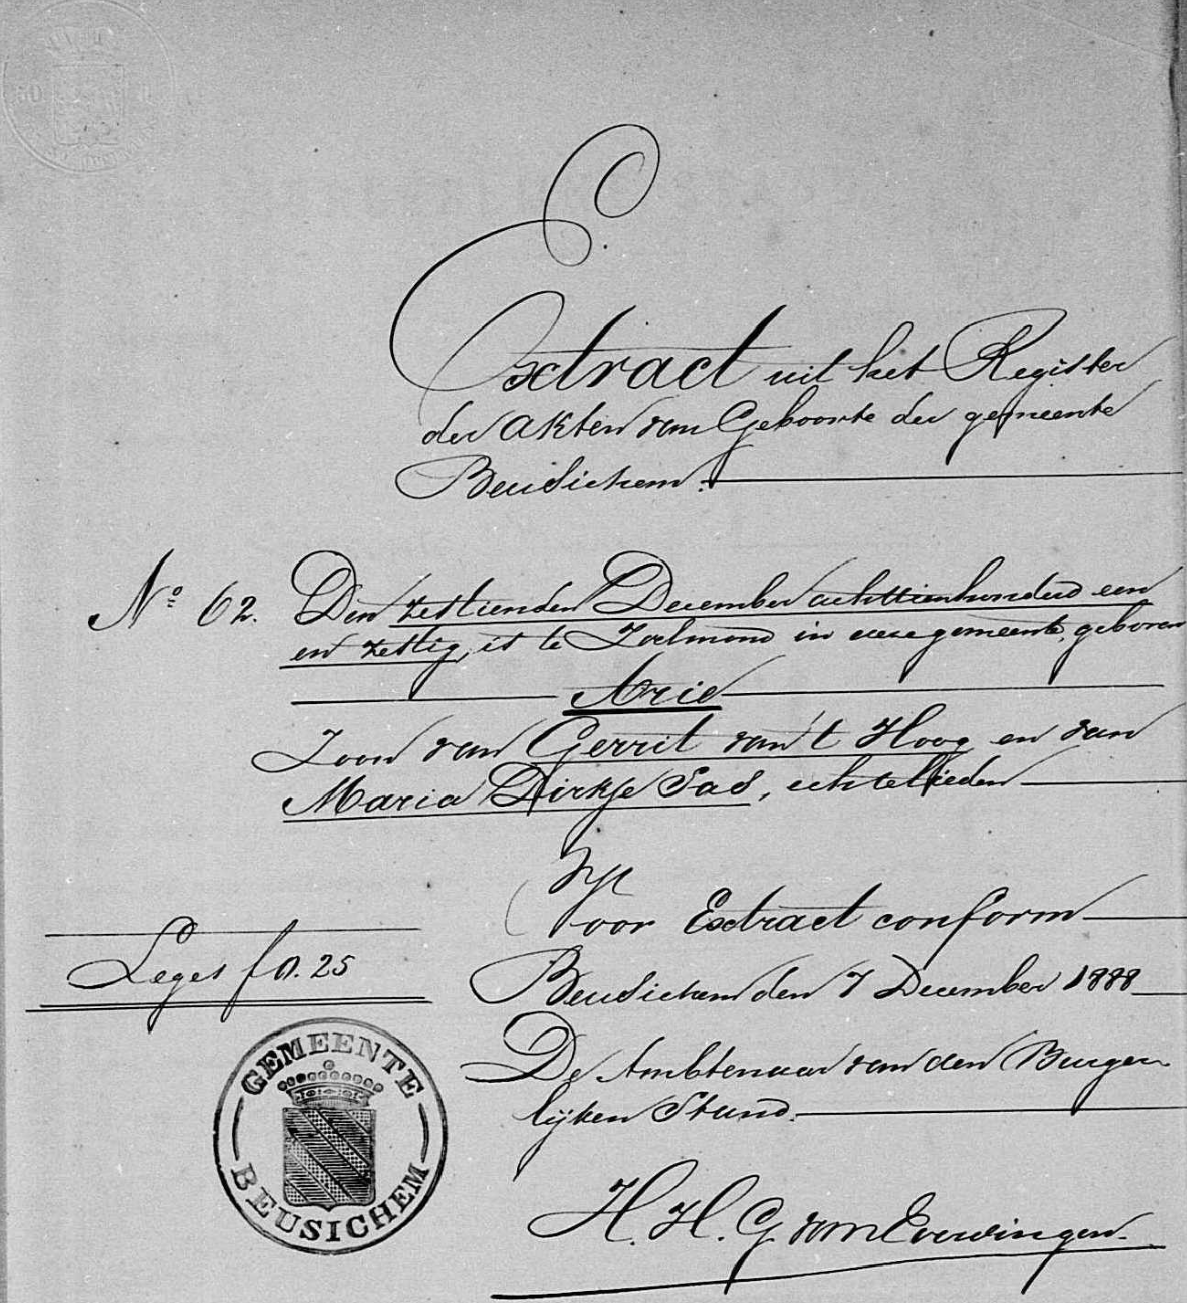 Extract uit het Register
der Akten van Geboorte der gemeente
Beusichem.
No. 62. Den zestienden December achttienhonderd een
en zestig, is te Zoelmond in deze gemeente, geboren
Arie
Zoon van Gerrit van 't Hoog en van
Maria Dirkje Sas, echtelieden
Voor Extract conform
Leges f 0.25
Beusichem den 7 December 1888
De Ambtenaar van den Burger-
lijken Stand.
GEMEENTE
BEUSICHEM
H. H. G. van Everdingen.